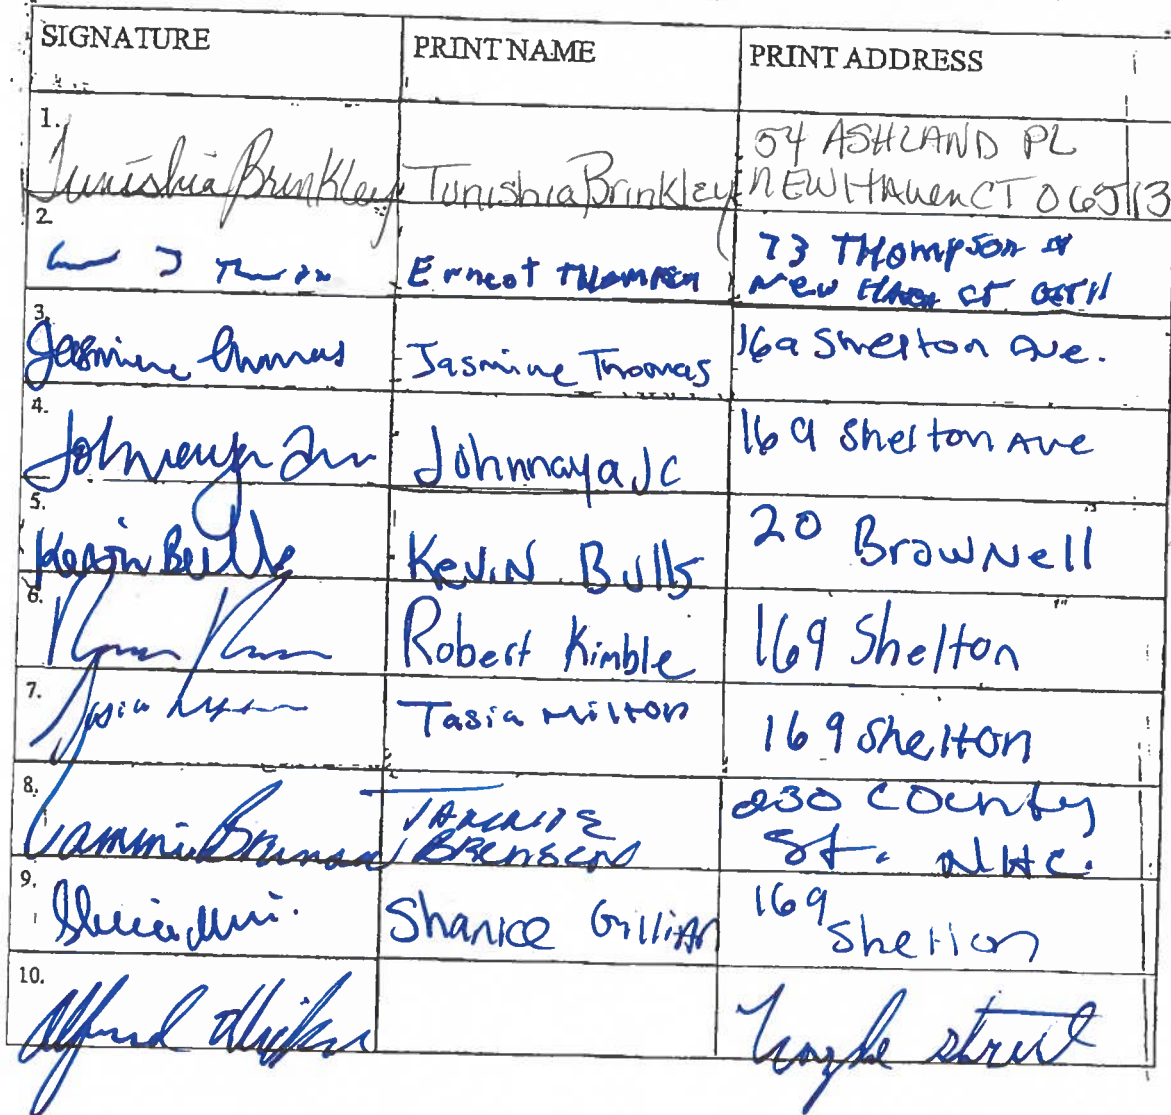 SIGNATURE PRINT NAME PRINT ADDRESS
1. Tunishia Brinkley Tunishia Brinkley 54 ASHLAND PL
NEW HAven CT 06513
2. Ernest THOMPSON 73 THompson St
New Haven CT
3. Jasmine Thomas Jasmine Thomas 169 Shelton Ave.
4. Johnnaya Johnnaya JC 169 Shelton Ave
5. Kevin Bulls KeviN Bulls 20 BrowNell
6. Robert Kimble 169 Shelton
7. Tasia Tasia Milton 169 Shelton
8. Tammi 230 County
St. NHC.
9. Shanice 169
Shelton
10. Alfred street